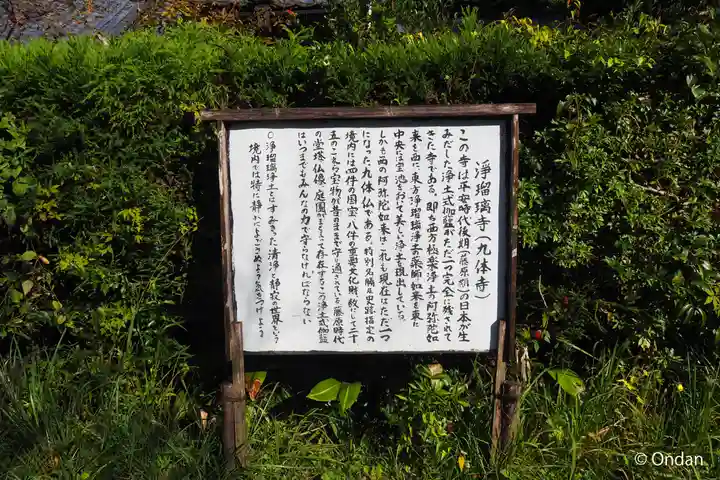 浄瑠璃寺(九体寺)
この寺は平安時代後期(藤原期)の日本が生
みだした浄土式伽藍がただ一つ完全に残されて
きた寺である。即ち西方極楽浄土の阿弥陀如
来を西に、東方浄瑠璃浄土の薬師如来を東に
中央には宝池をおいて美しい浄土を現出している。
しかも西の阿弥陀如来はこれも現在はただ一つ
になった九体仏である。特別名勝及史跡指定の
境内には四件の国宝、八件の重要文化財、数にして二十
五のこれら宝物が昔のままで守り通されている。藤原時代
の堂塔、仏像、庭園がまとまって存在するこの浄土式伽藍
はいつまでもみんなの力で守らなければならない
○浄瑠璃浄土とはすみきった清浄と静寂の世界をいう
境内では特に静かによごさぬよう気をつけましょう
© Ondan